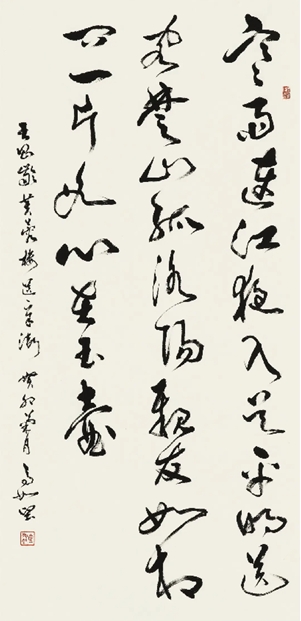 寒雨連江夜入吳平明送
客楚山孤洛陽親友如相
問一片冰心在玉壺
王昌齡芙蓉樓送辛漸 癸卯